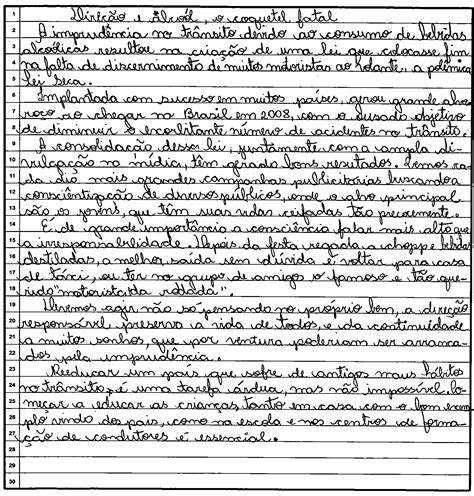 Direção e Álcool, o coquetel fatal
A imprudência no trânsito devido ao consumo de bebidas
alcoólicas resultou na criação de uma lei que colocasse fim
na falta de discernimento de muitos motoristas ao volante, a polêmica
lei seca.
Implantada com sucesso em muitos países, gerou grande alvo
roço ao chegar no Brasil em 2008, com o ousado objetivo
de diminuir o exorbitante número de acidentes no trânsito.
A consolidação dessa lei, juntamente com a ampla di-
vulgação na mídia, têm gerado bons resultados. Temos ca-
da dia mais grandes campanhas publicitárias buscando a
conscientização de diversos públicos, onde o alvo principal
são os jovens, que têm suas vidas ceifadas tão precocemente.
É de grande importância a consciência falar mais alto que
a irresponsabilidade. Depois da festa regada a chopp e bebidas
destiladas, a melhor saída sem dúvida é voltar para casa
de táxi, ou ter no grupo de amigos o famoso e tão que-
rido "motorista da rodada".
Devemos agir não só pensando no próprio bem, a direção
responsável preserva a vida de todos e da continuidade
a muitos sonhos, que por ventura poderiam ser arranca-
dos pela imprudência.
Reeducar um país que sofre de antigos maus hábitos
no trânsito, é uma tarefa árdua, mas não impossível. Co-
meçar a educar as crianças, tanto em casa com o bom exem-
plo vindo dos pais, como na escola e nos centros de forma-
ção de condutores é essencial.